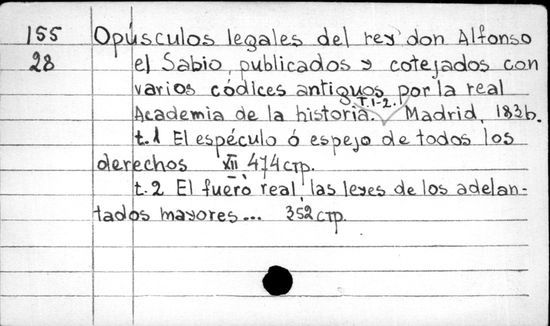 155 Opúsculos legales del rey don Alfonso
28 el Sabio, publicados y cotejados con
varios códices antiguos por la real
Academia de la historia. T.1-2. Madrid, 1836.
t.1 El espéculo ó espejo de todos los
derechos XII, 474 стр.
t.2 El fuero real, las leyes de los adelan-
tados mayores... 352 стр.